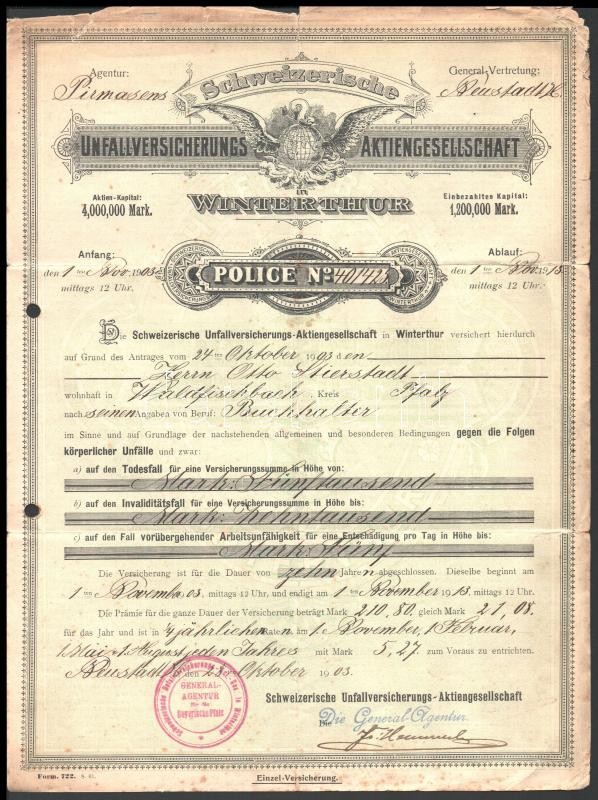 Agentur:
Pirmasens
General-Vertretung:
Neustadt
Schweizerische
UNFALLVERSICHERUNGS AKTIENGESELLSCHAFT
in
WINTERTHUR
Aktien-Kapital:
4,000,000 Mark.
Einbezahltes Kapital:
1,200,000 Mark.
Anfang:
den 1ten Nov. 1903
mittags 12 Uhr.
POLICE No 401425
Ablauf:
den 1ten Nov. 1913
mittags 12 Uhr.
Die Schweizerische Unfallversicherungs-Aktiengesellschaft in Winterthur versichert hierdurch
auf Grund des Antrages vom 24ten Oktober 1903 den
Herrn Otto Stierstadt
wohnhaft in Waldfischbach, Kreis Pfalz
nach seinen Angaben von Beruf: Buchhalter
im Sinne und auf Grundlage der nachstehenden allgemeinen und besonderen Bedingungen gegen die Folgen
körperlicher Unfälle und zwar:
a) auf den Todesfall für eine Versicherungssumme in Höhe von:
Mark: Fünftausend
b) auf den Invaliditätsfall für eine Versicherungssumme in Höhe bis:
Mark: Zehntausend
c) auf den Fall vorübergehender Arbeitsunfähigkeit für eine Entschädigung pro Tag in Höhe bis:
Mark: Fünf
Die Versicherung ist für die Dauer von zehn Jahren abgeschlossen. Dieselbe beginnt am
1ten Novemb. 03. mittags 12 Uhr, und endigt am 1ten November 1913. mittags 12 Uhr.
Die Prämie für die ganze Dauer der Versicherung beträgt Mark 210.80. gleich Mark 21,08.
für das Jahr und ist in 1/4 jährlichen Raten am 1. November, 1. Februar,
1. Mai, 1. August jeden Jahres mit Mark 5,27. zum Voraus zu entrichten.
Neustadt den 28ten Oktober 1903.
GENERAL-
AGENTUR
für die
Bayerische Pfalz
Schweizerische Unfallversicherungs-Aktiengesellschaft
Die Die General-Agentur.
Form. 722.
Einzel-Versicherung.